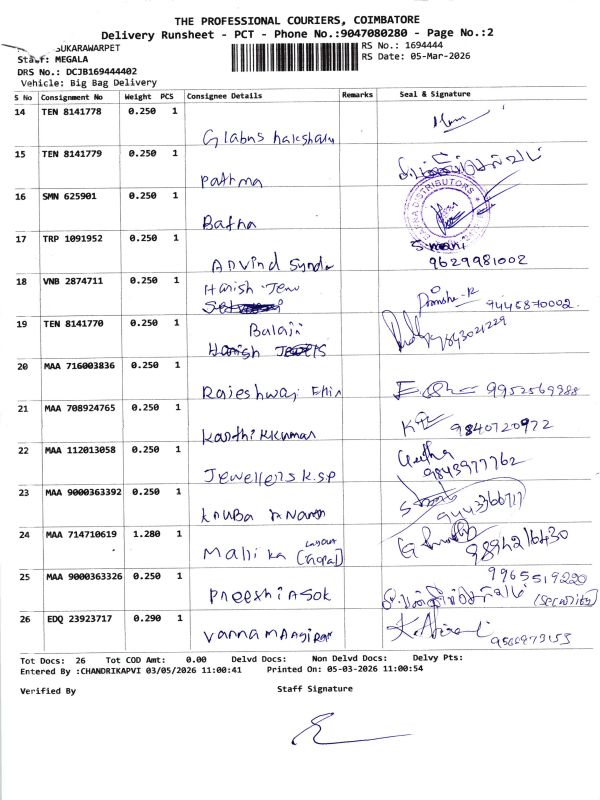 THE PROFESSIONAL COURIERS, COIMBATORE
Delivery Runsheet - PCT - Phone No.:9047080280 - Page No.:2
SUKARAWARPET
RS No.: 1694444
Staff: MEGALA
RS Date: 05-Mar-2026
DRS No.: DCJB169444402
Vehicle: Big Bag Delivery
S No Consignment No Weight PCS Consignee Details Remarks Seal & Signature
14 TEN 8141778 0.250 1
Glabus
15 TEN 8141779 0.250 1
Pathma
16 SMN 625901 0.250 1
BAFNA DISTRIBUTORS
Bafna
17 TRP 1091952 0.250 1
Arvind
9629981002
18 VNB 2874711 0.250 1
Harish Jew
9445870002
19 TEN 8141770 0.250 1
Balaji
9843021229
Harish
20 MAA 716003836 0.250 1
Rajeshwaj
9952569988
21 MAA 708924765 0.250 1
Karthikkumar
9840720972
22 MAA 112013058 0.250 1
Geetha
Jewellers K.S.P
9843977762
23 MAA 9000363392 0.250 1
24 MAA 714710619 1.280 1
Layout
Mallika
9894216430
25 MAA 9000363326 0.250 1
9965519220
Preethi Asok
(Security)
26 EDQ 23923717 0.290 1
9566973153
Tot Docs: 26 Tot COD Amt: 0.00 Delvd Docs: Non Delvd Docs: Delvy Pts:
Entered By :CHANDRIKAPVI 03/05/2026 11:00:41 Printed On: 05-03-2026 11:00:54
Verified By Staff Signature